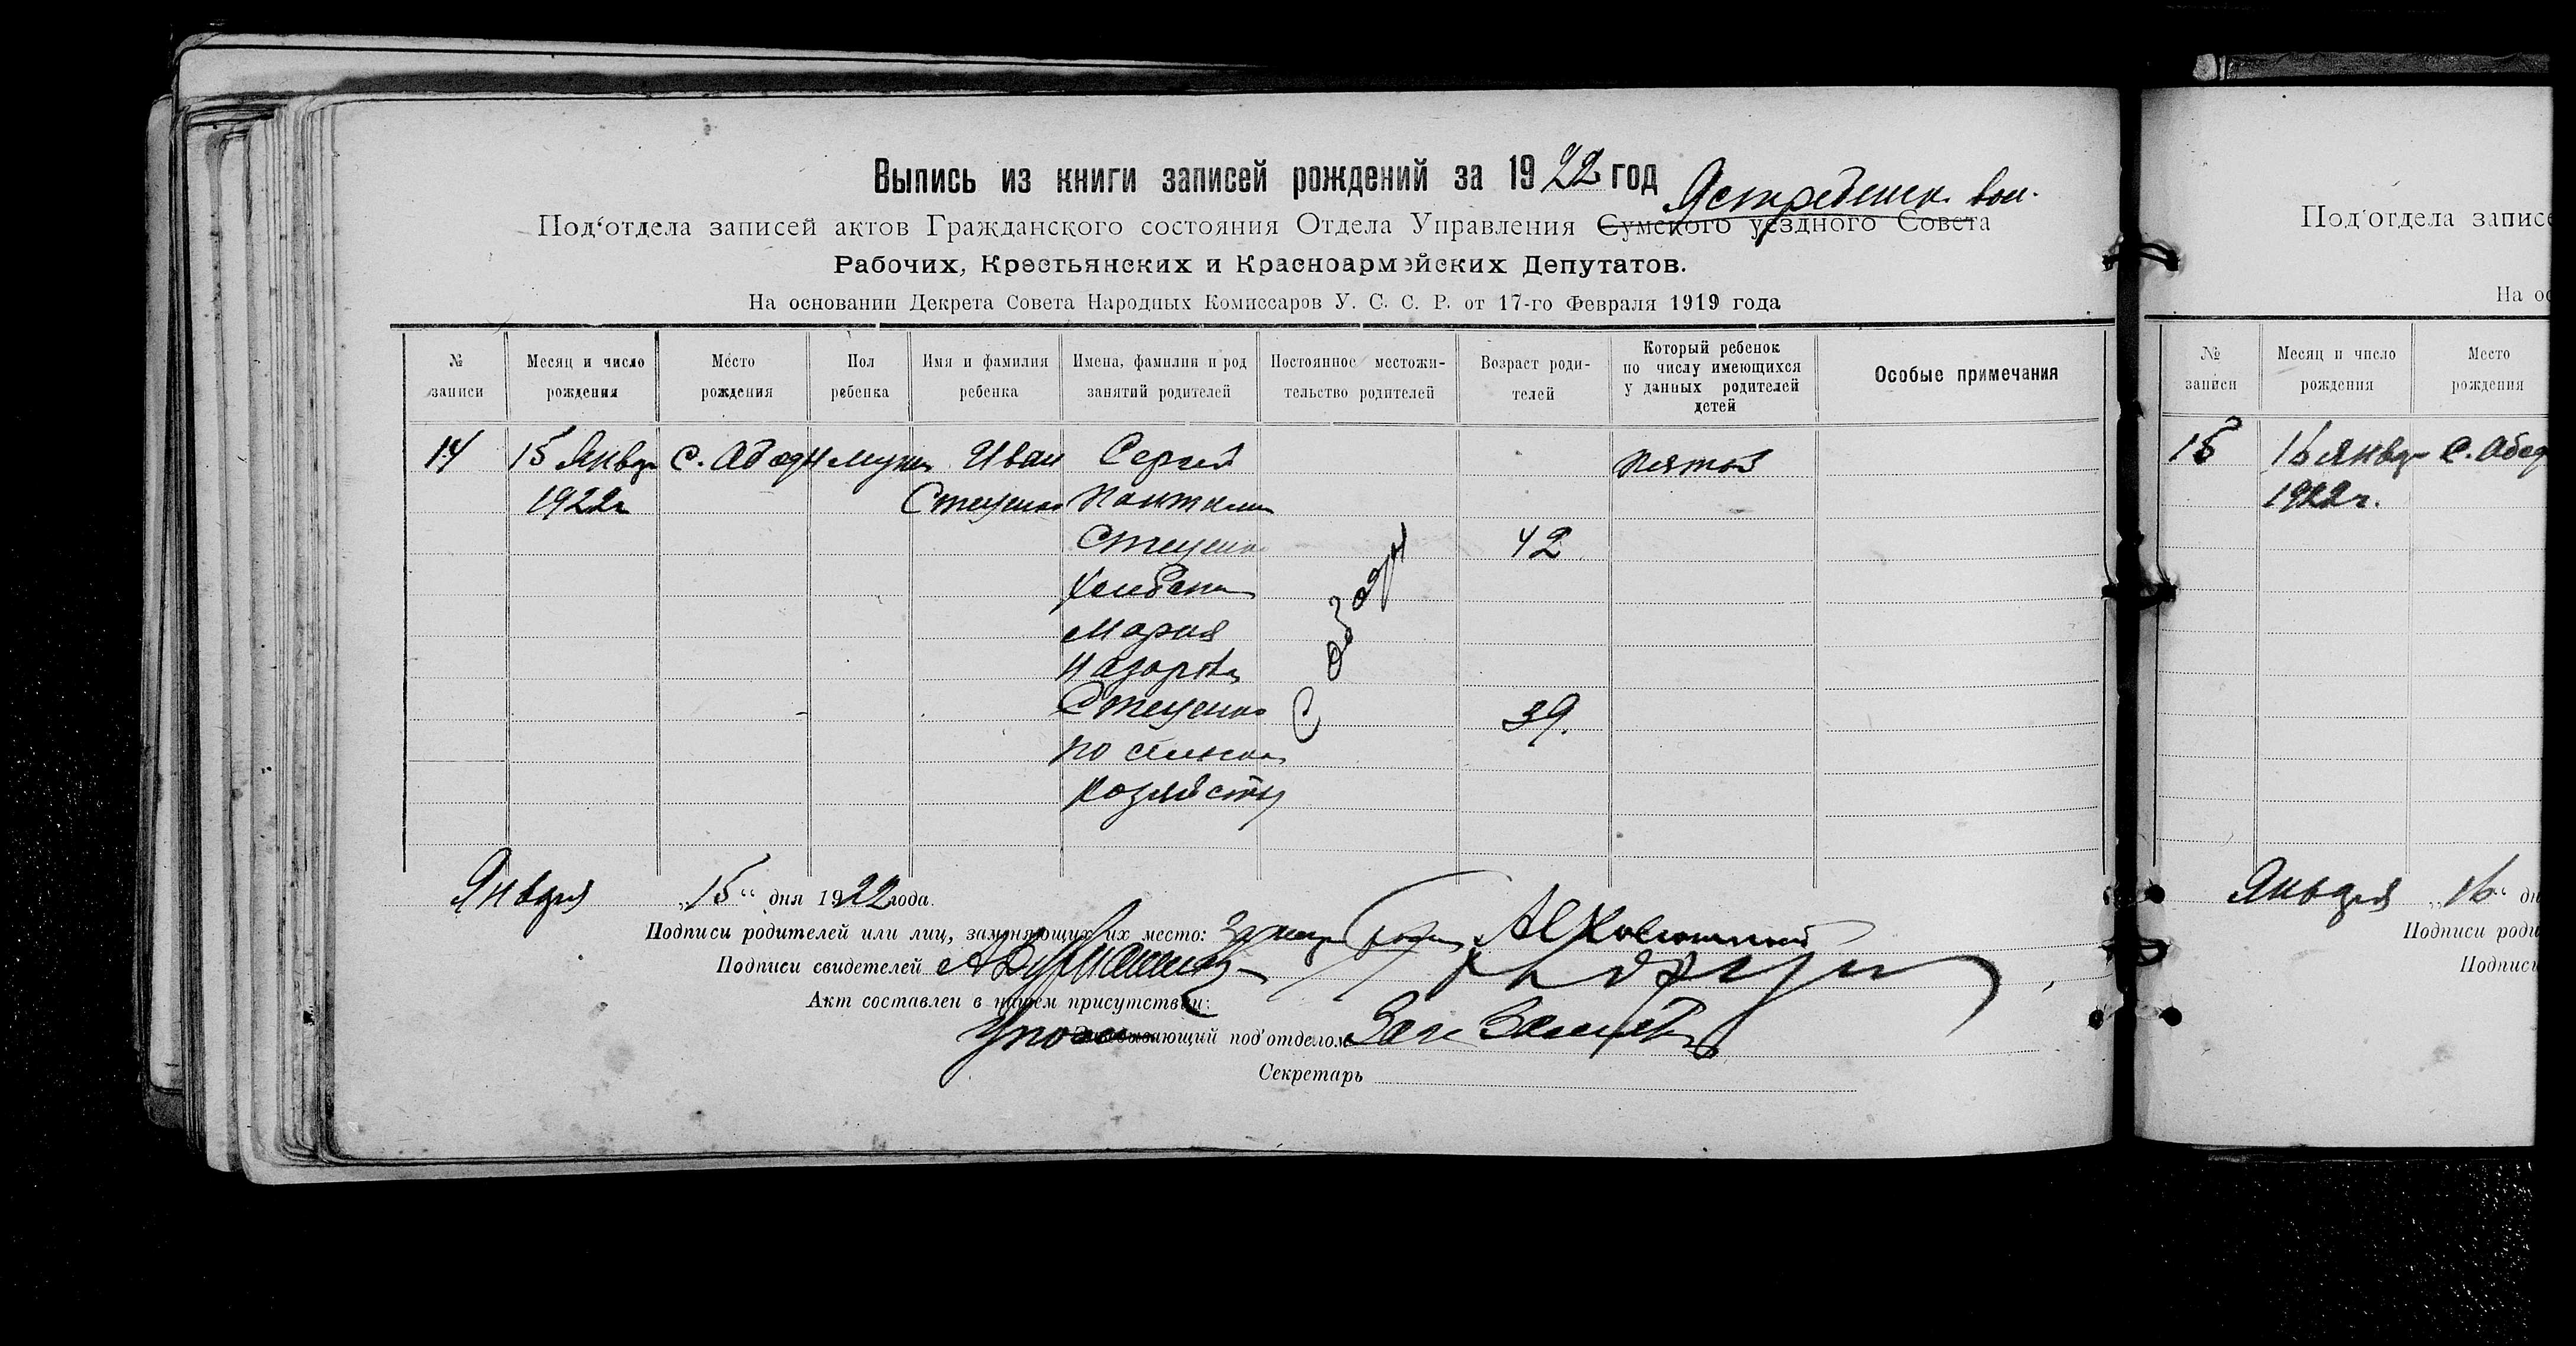 Выпись из книги записей рождений за 1922 год
Ястребенск. вол.
Под‘отдела записей актов Гражданского состояния Отдела Управления Сумского уездного Совета
Рабочих, Крестьянских и Красноармейских Депутатов.
На основании Декрета Совета Народных Комиссаров У. С. С. Р. от 17-го Февраля 1919 года
№ записи
Месяц и число рождения
Место рождения
Пол ребенка
Имя и фамилия ребенка
Имена, фамилии и род занятий родителей
Постоянное местожительство родителей
Возраст родителей
Который ребенок по числу имеющихся у данных родителей детей
Особые примечания
14 15 Январ с. Ободы мужк Иван Сергей пятый
1922г Стеценко
Стеценко 42
Хлебопа
Мария
Назаров
Стеценко 39.
по сельском
хозяйству
с Ободы
Января „15“ дня 1922 года.
Подписи родителей или лиц, заменяющих их место:
Подписи свидетелей
Акт составлен в нашем присутствии:
Заведывающий под‘отделом
Секретарь
Под‘отдела записе
На ос
№ записи
Месяц и число рождения
Место рождения
15 16 Январ с. Обод
1922г.
Января „16“ дн
Подписи роди
Подписи